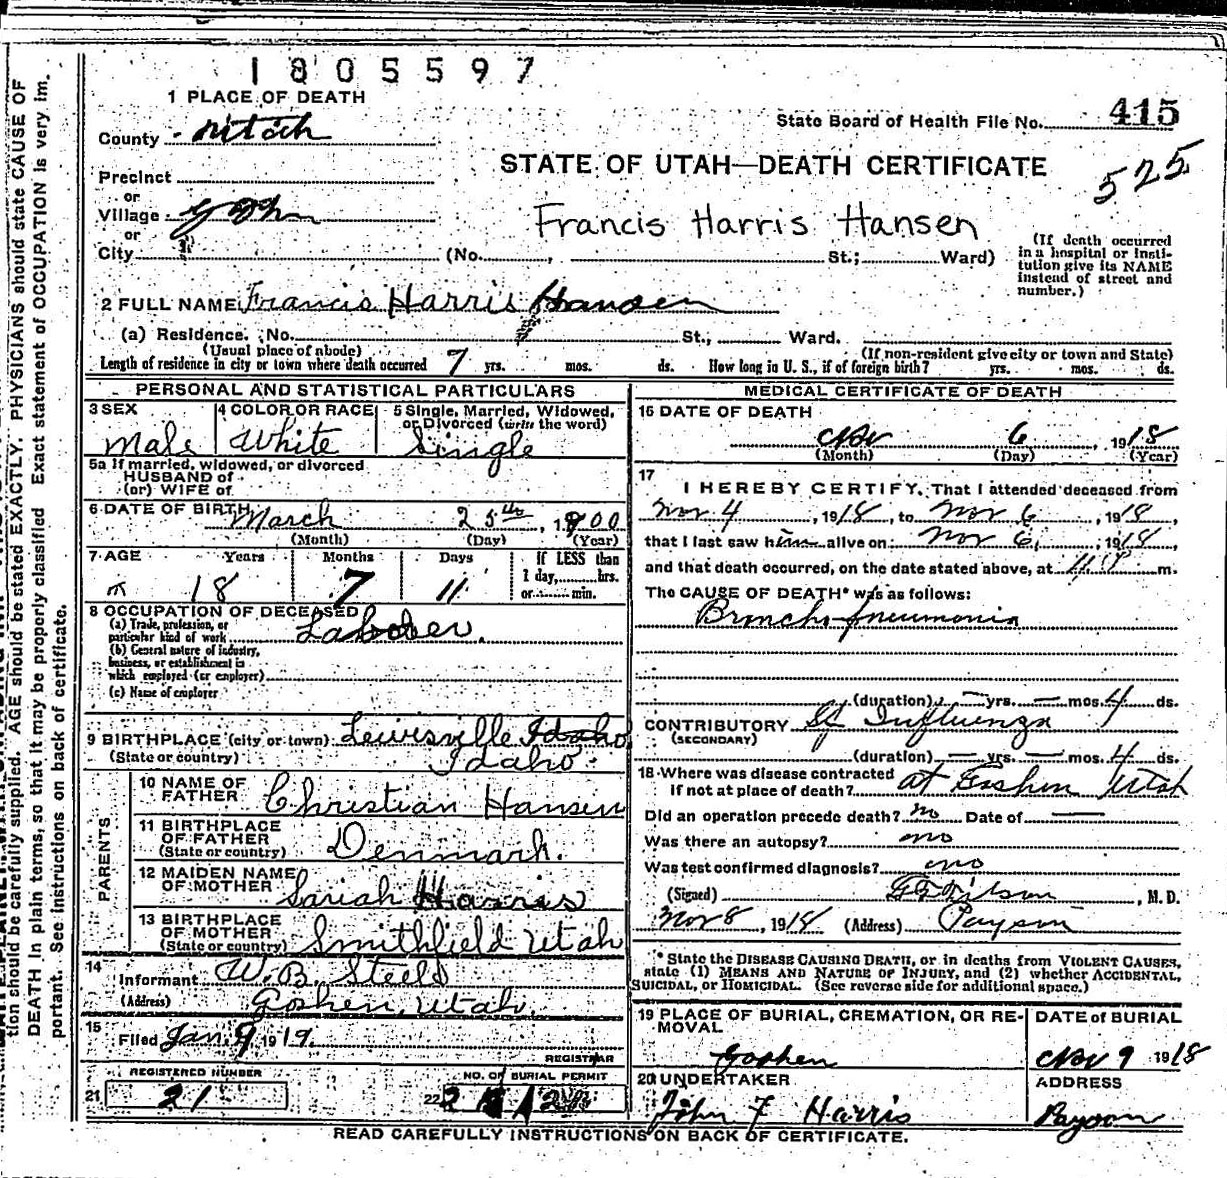 1805597
1 PLACE OF DEATH
County Utah
State Board of Health File No. 415
STATE OF UTAH—DEATH CERTIFICATE
525
Precinct
or
Village Goshen
or
City (No. , St.; Ward)
Francis Harris Hansen
(If death occurred in a hospital or institution give its NAME instead of street and number.)
2 FULL NAME Francis Harris Hansen
(a) Residence. No. St., Ward.
(Usual place of abode) (If non-resident give city or town and State)
Length of residence in city or town where death occurred 7 yrs. mos. ds. How long in U. S., if of foreign birth? yrs. mos. ds.
PERSONAL AND STATISTICAL PARTICULARS
3 SEX 4 COLOR OR RACE 5 Single, Married, Widowed, or Divorced (write the word)
Male White Single
5a If married, widowed, or divorced
HUSBAND of
(or) WIFE of
6 DATE OF BIRTH March 25th, 1900
(Month) (Day) (Year)
7 AGE Years Months Days If LESS than
1 day, hrs.
or min.
18 7 11
8 OCCUPATION OF DECEASED
(a) Trade, profession, or
particular kind of work Laborer.
(b) General nature of industry,
business, or establishment in
which employed (or employer)
(c) Name of employer
9 BIRTHPLACE (city or town) Lewisville Idaho
(State or country) Idaho.
PARENTS
10 NAME OF FATHER Christian Hansen
11 BIRTHPLACE OF FATHER
(State or country) Denmark.
12 MAIDEN NAME OF MOTHER Sariah Harris
13 BIRTHPLACE OF MOTHER
(State or country) Smithfield Utah
14 Informant W. B. Steele
(Address) Goshen, Utah.
15 Filed Jan. 9 1919.
REGISTRAR
REGISTERED NUMBER NO. OF BURIAL PERMIT
21 21 22
MEDICAL CERTIFICATE OF DEATH
16 DATE OF DEATH
Nov 6, 1918
(Month) (Day) (Year)
17 I HEREBY CERTIFY, That I attended deceased from
Nov 4, 1918, to Nov 6, 1918,
that I last saw him alive on Nov 6, 1918,
and that death occurred, on the date stated above, at 11 P m.
The CAUSE OF DEATH* was as follows:
Broncho-pneumonia
(duration) — yrs. — mos. 4 ds.
CONTRIBUTORY Influenza
(SECONDARY)
(duration) — yrs. — mos. 4 ds.
18 Where was disease contracted
if not at place of death? at Goshen Utah
Did an operation precede death? no Date of —
Was there an autopsy? no
Was test confirmed diagnosis? no
(Signed) , M. D.
Nov 8, 1918 (Address) Payson
* State the DISEASE CAUSING DEATH, or in deaths from VIOLENT CAUSES,
state (1) MEANS AND NATURE OF INJURY, and (2) whether ACCIDENTAL,
SUICIDAL, or HOMICIDAL. (See reverse side for additional space.)
19 PLACE OF BURIAL, CREMATION, OR REMOVAL DATE of BURIAL
Goshen Nov 9 1918
20 UNDERTAKER ADDRESS
John F Harris Payson
READ CAREFULLY INSTRUCTIONS ON BACK OF CERTIFICATE.
tion should be carefully supplied. AGE should be stated EXACTLY. PHYSICIANS should state CAUSE OF
DEATH in plain terms, so that it may be properly classified. Exact statement of OCCUPATION is very im-
portant. See instructions on back of certificate.